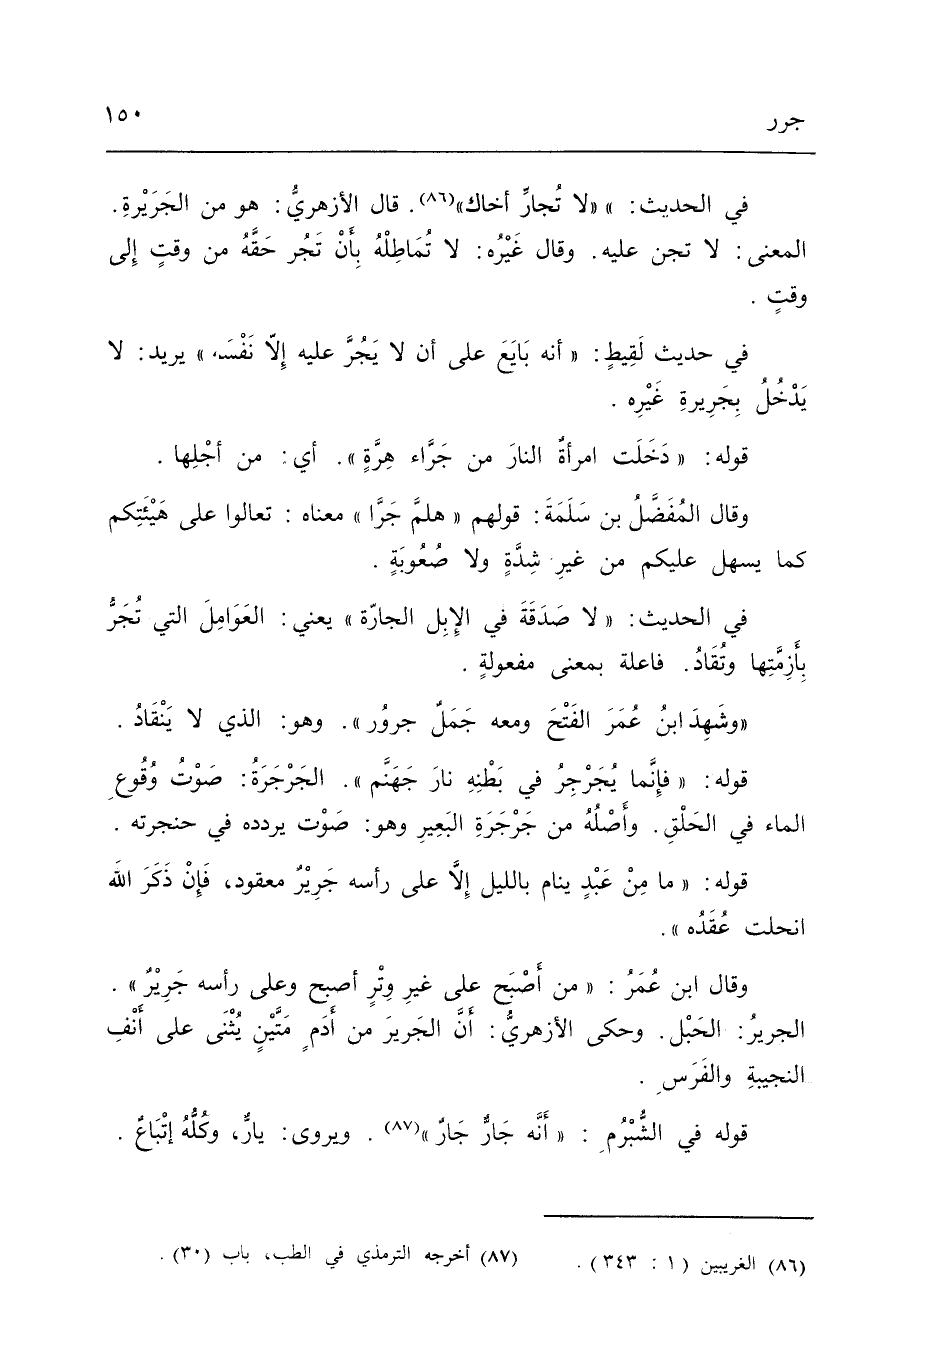 جرر ١٥٠
في الحديث: » «لا تُجارِّ أخاك»(٨٦). قال الأزهريُّ: هو من الجَرَيْرةِ.
المعنى: لا تجن عليه. وقال غَيْرُه: لا تُمَاطِلْهُ بِأَنْ تَجُر حَقَّهُ من وقتٍ إلى
وقتٍ .
في حديث لَقِيطٍ: « أنه بَايَعَ على أن لا يَجُرَّ عليه إِلاّ نَفْسَه » يريد: لا
يَدْخُلُ بِجَرِيرةِ غَيْرِه .
قوله: « دَخَلَت امرأةٌ النارَ من جَرَّاء هِرَّةٍ ». أي: من أجْلِها .
وقال المُفَضَّلُ بن سَلَمَةَ: قولهم « هلمَّ جَرَّا » معناه : تعالوا على هَيْئَتِكم
كما يسهل عليكم من غيرِ شِدَّةٍ ولا صُعُوبَةٍ .
في الحديث: « لا صَدَقَةَ في الإِبل الجارّة » يعني: العَوَامِلَ التي تُجَرُّ
بِأَزِمَّتِها وتُقَادُ. فاعلة بمعنى مفعولةٍ .
«وشَهِدَ ابنُ عُمَرَ الفَتْحَ ومعه جَمَلٌ جروُر». وهو: الذي لا يَنْقَادُ .
قوله: « فإِنَّما يُجَرْجِرُ في بَطْنِهِ نارَ جَهَنَّم ». الجَرْجَرَةُ: صَوْتُ وُقُوعِ
الماء في الحَلْقِ. وأَصْلُهُ من جَرْجَرَةِ البَعِيرِ وهو: صَوْت يردده في حنجرته .
قوله: « ما مِنْ عَبْدٍ ينام بالليل إِلاَّ على رأسه جَرِيْرٌ معقود، فَإِنْ ذَكَرَ الله
انحلت عُقَدُه ».
وقال ابن عُمَرُ : « من أَصْبَح على غيرِ وِتْرٍ أصبح وعلى رأسه جَرِيْرٌ » .
الجريرُ: الحَبْل. وحكى الأزهريُّ: أَنَّ الجَريرَ من أَدَمٍ مَتَّيْنٍ يُثْنَى على أَنْفِ
النجيبةِ والفَرَسِ .
قوله في الشُّبْرُمِ : « أَنَّه جَارٌّ جَارٌ »(٨٧) . ويروى: يارٌّ، وكُلُّهُ إتْبَاعٌ .
(٨٦) الغريبين (١ : ٣٤٣) . (٨٧) أخرجه الترمذي في الطب، باب (٣٠) .